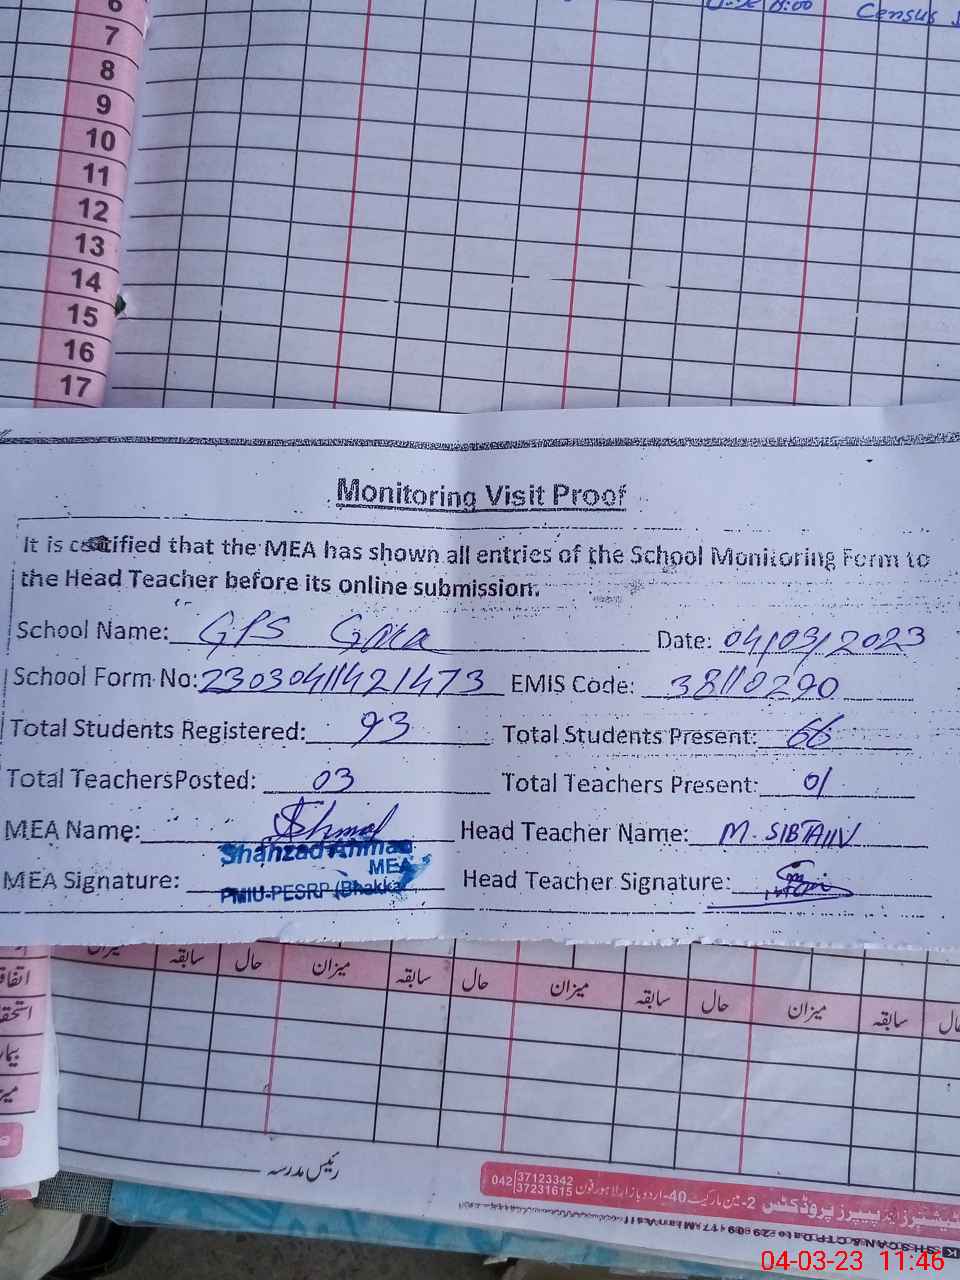 Census
6
7
8
9
10
11
12
13
14
15
16
17
Monitoring Visit Proof
It is certified that the MEA has shown all entries of the School Monitoring Form to
the Head Teacher before its online submission.
School Name: GPS Date: 04/03/2023
School Form No: 23030411421473 EMIS Code: 38110290
Total Students Registered: 93 Total Students Present: 66
Total TeachersPosted: 03 Total Teachers Present: 01
MEA Name: Head Teacher Name: M. SIBTAIN
Shahzad Ahmad
MEA
MEA Signature: Head Teacher Signature:
PMIU-PESRP (Bhakkar
میزان سابقہ حال میزان سابقہ حال میزان سابقہ حال میزان سابقہ حال
رئیس مدرسہ
042 37123342
37231615
پیپرز پروڈکٹس 2-مین مارکیٹ 40-اردو بازار لاہور فون
04-03-23 11:46